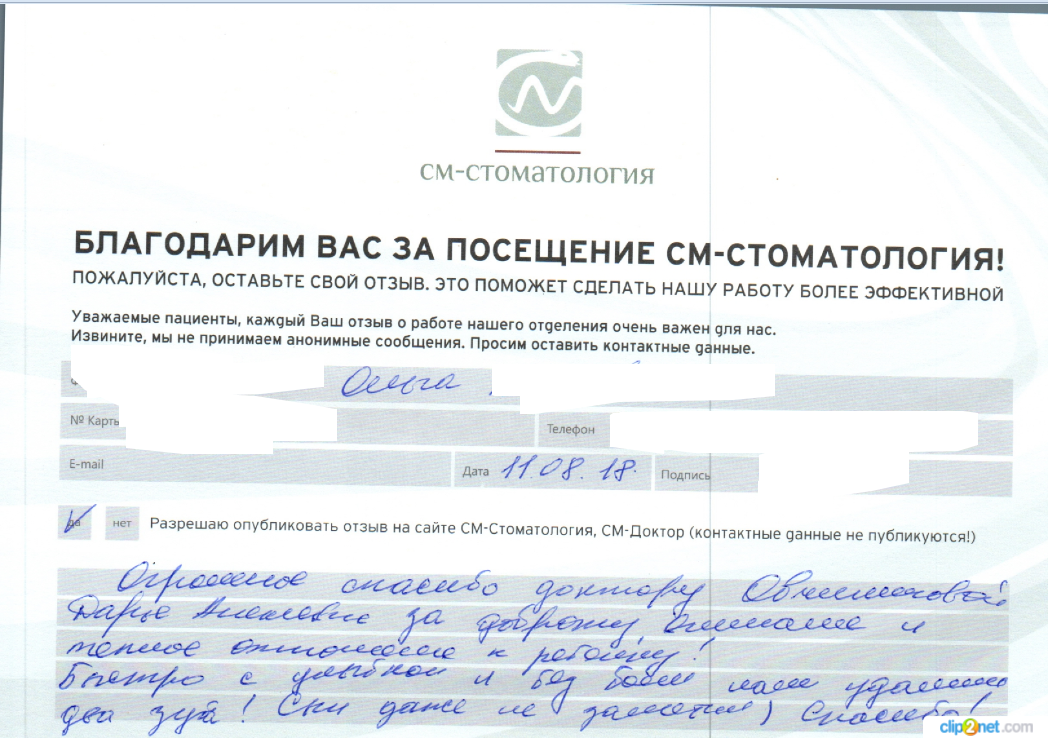 СМ-СТОМАТОЛОГИЯ
БЛАГОДАРИМ ВАС ЗА ПОСЕЩЕНИЕ СМ-СТОМАТОЛОГИЯ!
ПОЖАЛУЙСТА, ОСТАВЬТЕ СВОЙ ОТЗЫВ. ЭТО ПОМОЖЕТ СДЕЛАТЬ НАШУ РАБОТУ БОЛЕЕ ЭФФЕКТИВНОЙ
Уважаемые пациенты, каждый Ваш отзыв о работе нашего отделения очень важен для нас.
Извините, мы не принимаем анонимные сообщения. Просим оставить контактные данные.
Ольга
№ Карты Телефон
E-mail Дата 11.08.18. Подпись
да нет Разрешаю опубликовать отзыв на сайте СМ-Стоматология, СМ-Доктор (контактные данные не публикуются!)
Огромное спасибо доктору Овчинниковой
Дарье Алексеевне за доброту, внимание и
теплое отношение к ребенку!
Быстро с улыбкой и без боли нам удалили
два зуба! Сын даже не заметил) Спасибо!
clip2net.com